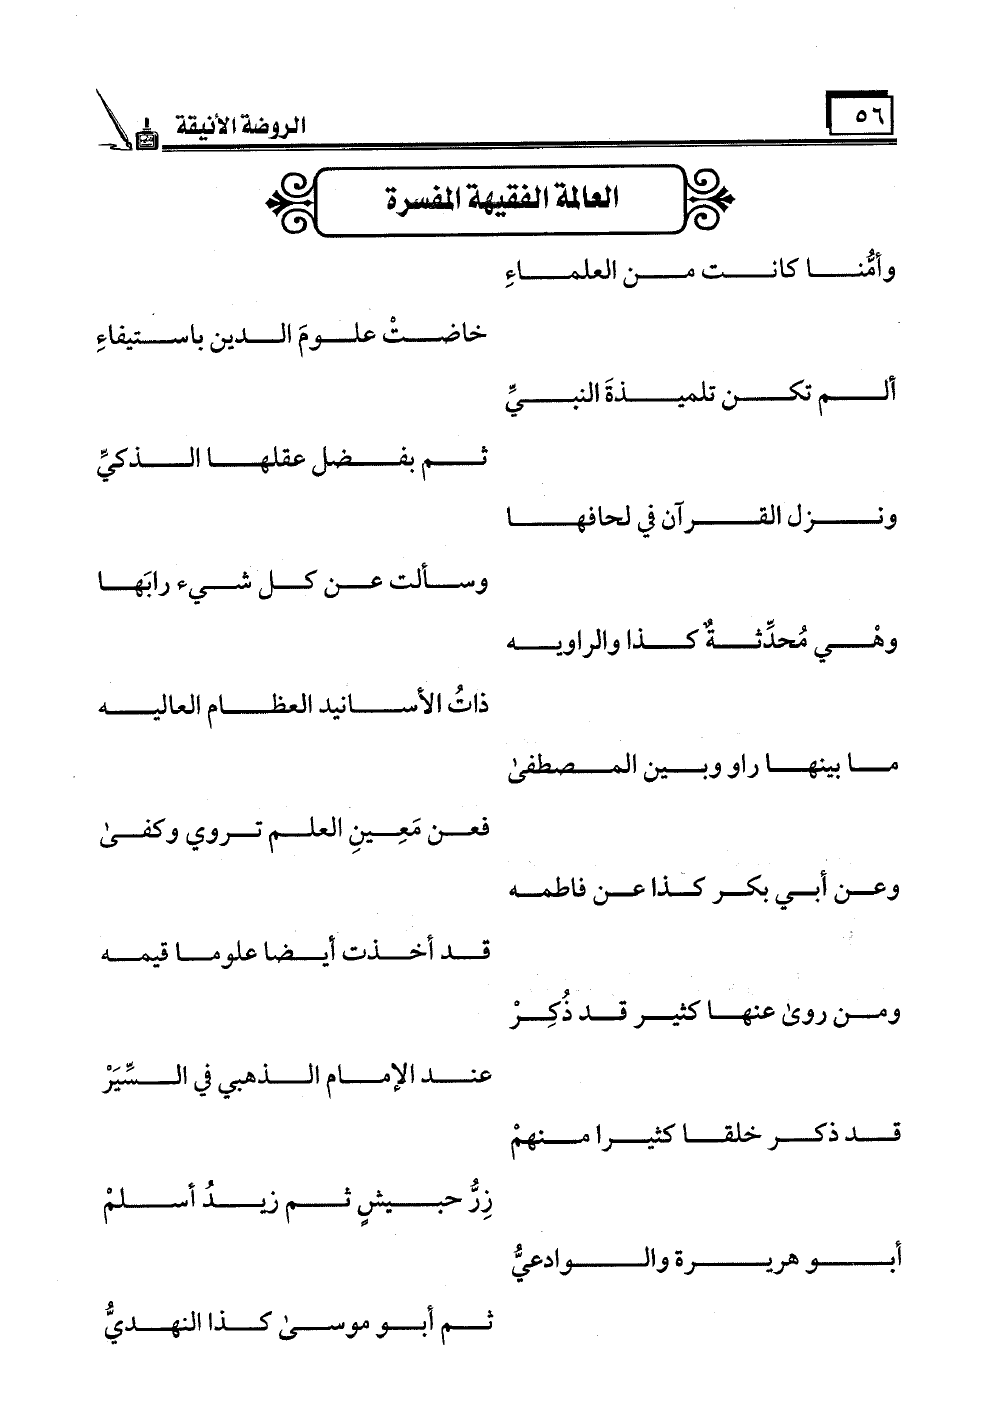 ٥٦
الروضة الأنيقة
العالمة الفقيهة المفسرة
وأمُّنا كانت من العلماءِ
خاضتْ علومَ الدين باستيفاءِ
ألم تكن تلميذةَ النبيِّ
ثم بفضل عقلها الذكيِّ
ونزل القرآن في لحافها
وسألت عن كل شيء رابَها
وهْي مُحدِّثةٌ كذا والراويه
ذاتُ الأسانيد العظام العاليه
ما بينها راو وبين المصطفىٰ
فعن مَعِينِ العلم تروي وكفىٰ
وعن أبي بكر كذا عن فاطمه
قد أخذت أيضا علوما قيمه
ومن روىٰ عنها كثير قد ذُكِرْ
عند الإمام الذهبي في السِّيَرْ
قد ذكر خلقا كثيرا منهمْ
زِرُّ حبيشٍ ثم زيدُ أسلمْ
أبو هريرة والوادعيُّ
ثم أبو موسىٰ كذا النهديُّ